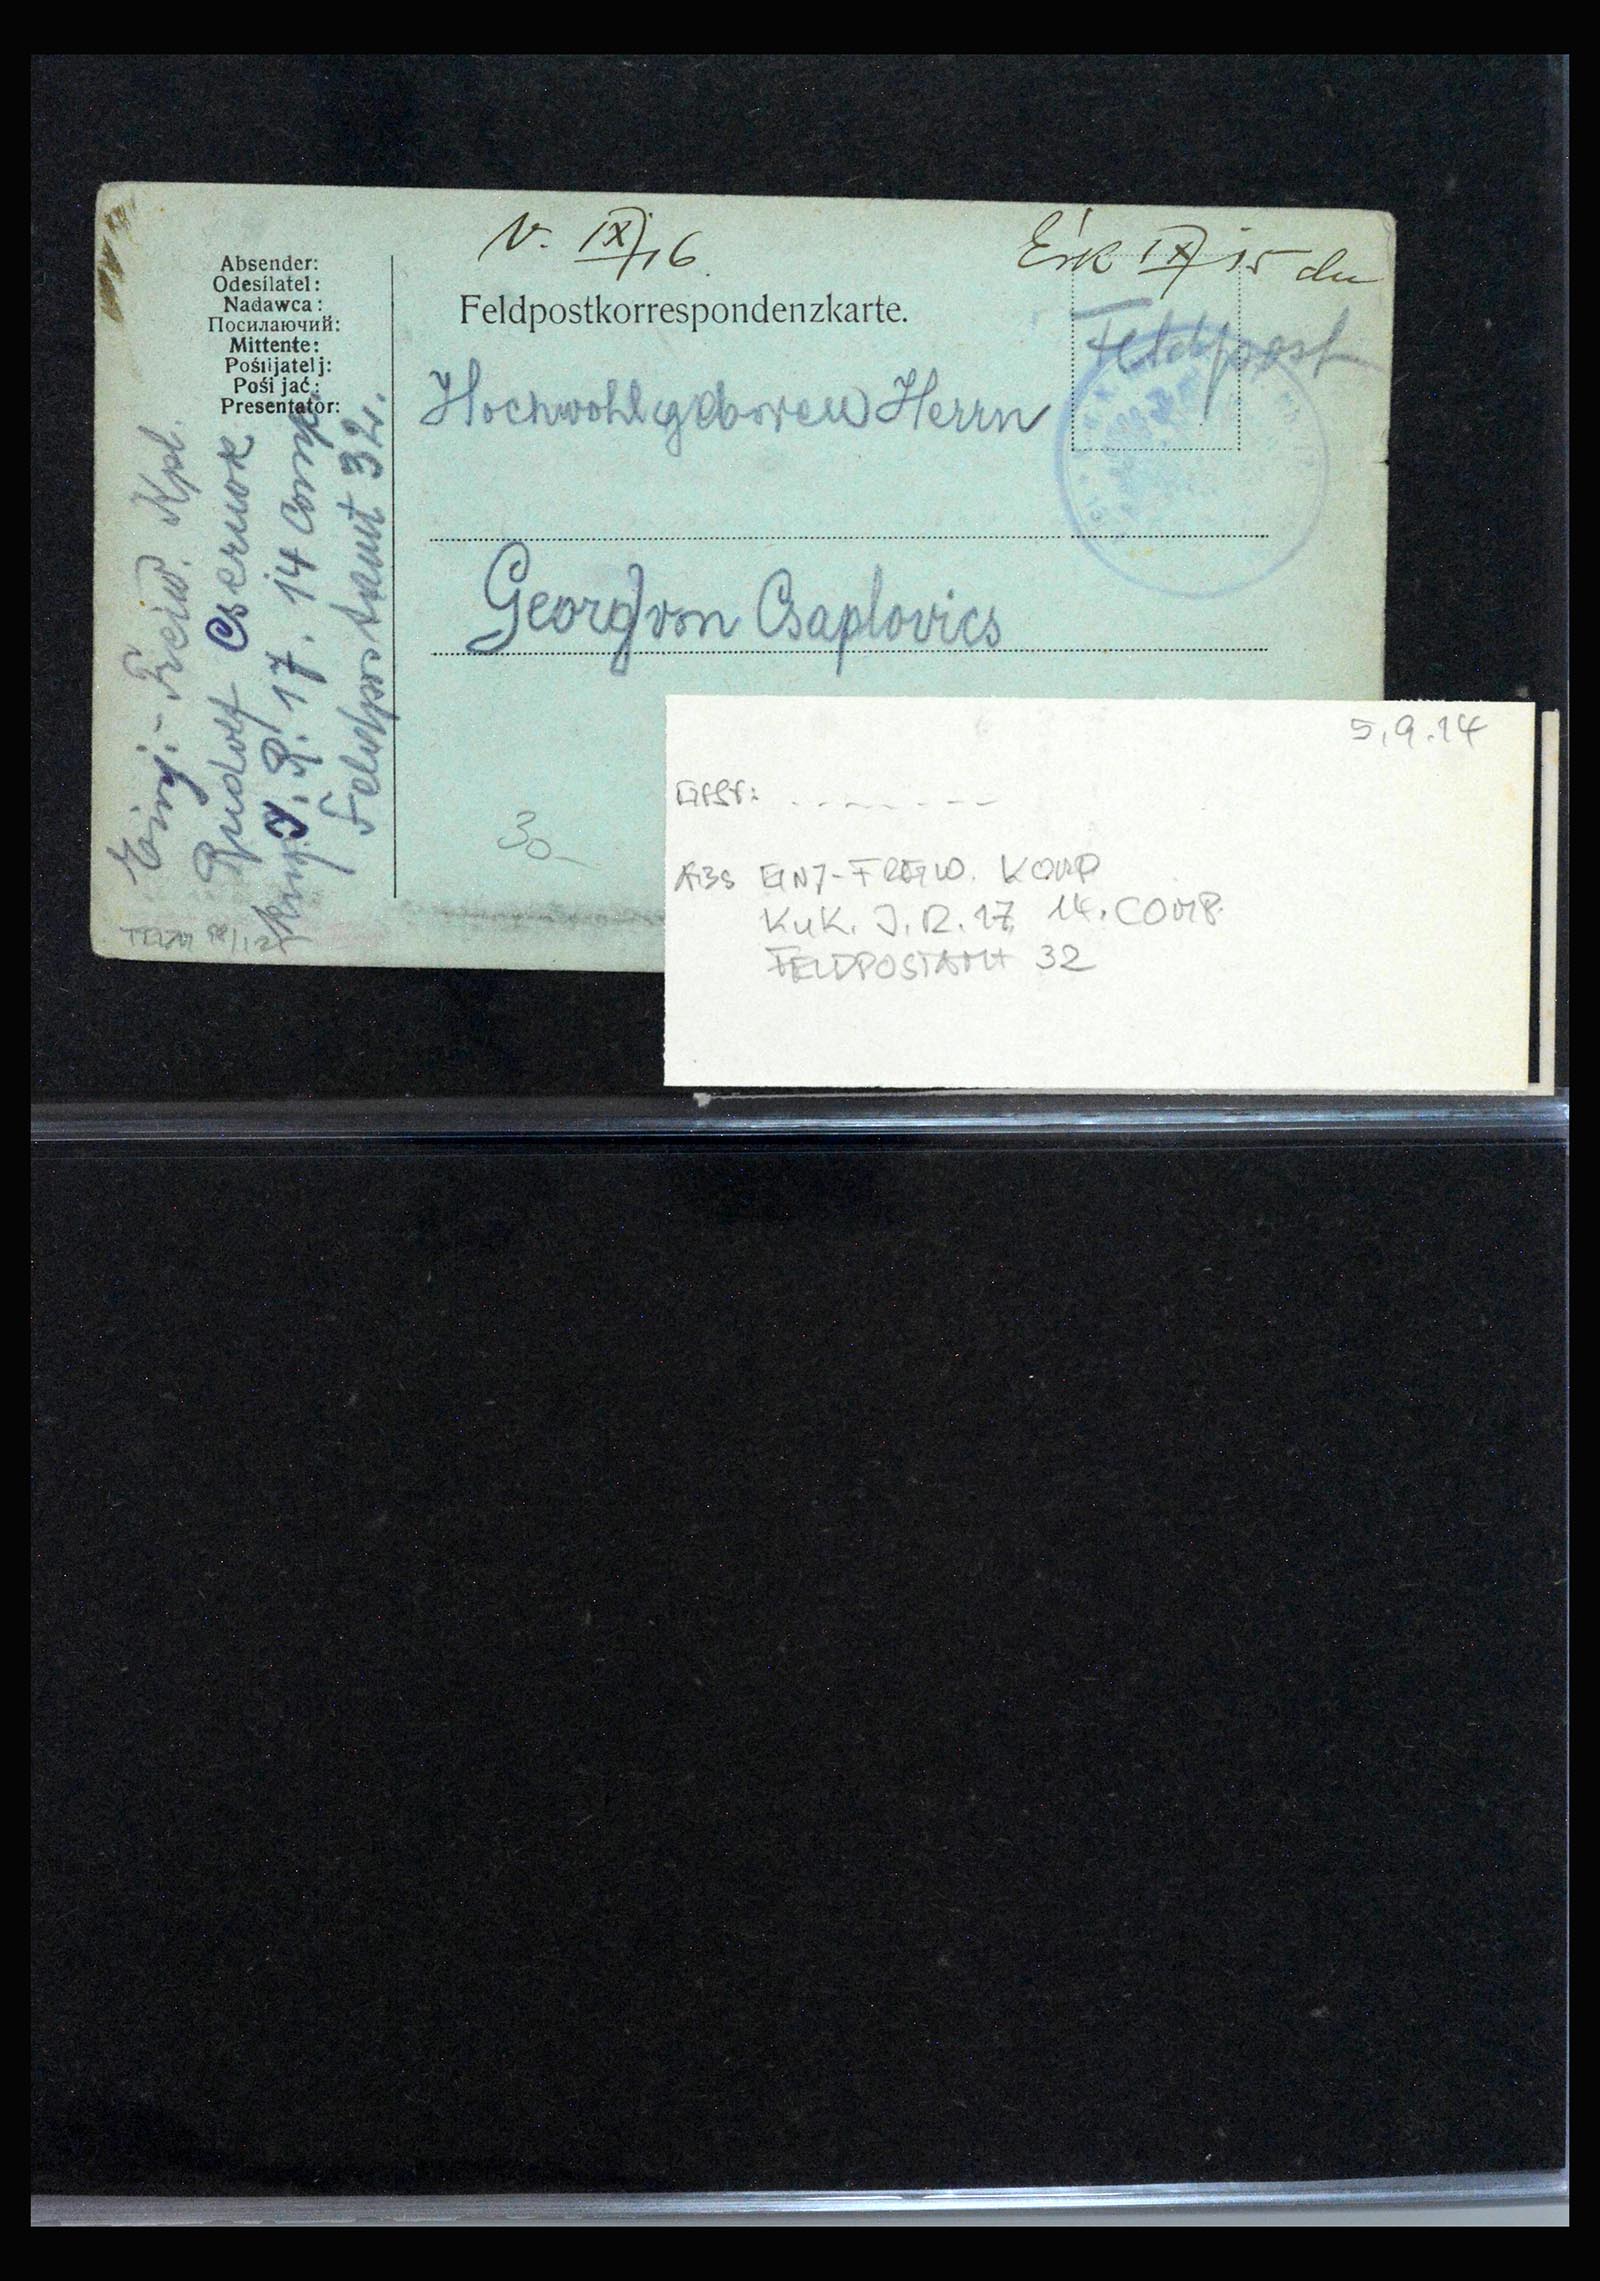 v. IX/16
Érk IX/15 du
Absender:
Odesílatel:
Nadawca:
Посилаючий:
Mittente:
Pošiljatelj:
Pošijać:
Presentator:
Feldpostkorrespondenzkarte.
Feldpost
Hochwohlgeboren Herrn
Georg von Csaplovics
Einj.-Freiw. Kpl.
Rudolf Csermok
J. R. 17. 14 Comp.
Feldpostamt 32.
30.–
5.9.14
ABS EINJ-FREIW. KOMP
KuK. J.R. 17, 14. COMP.
FELDPOSTAMT 32